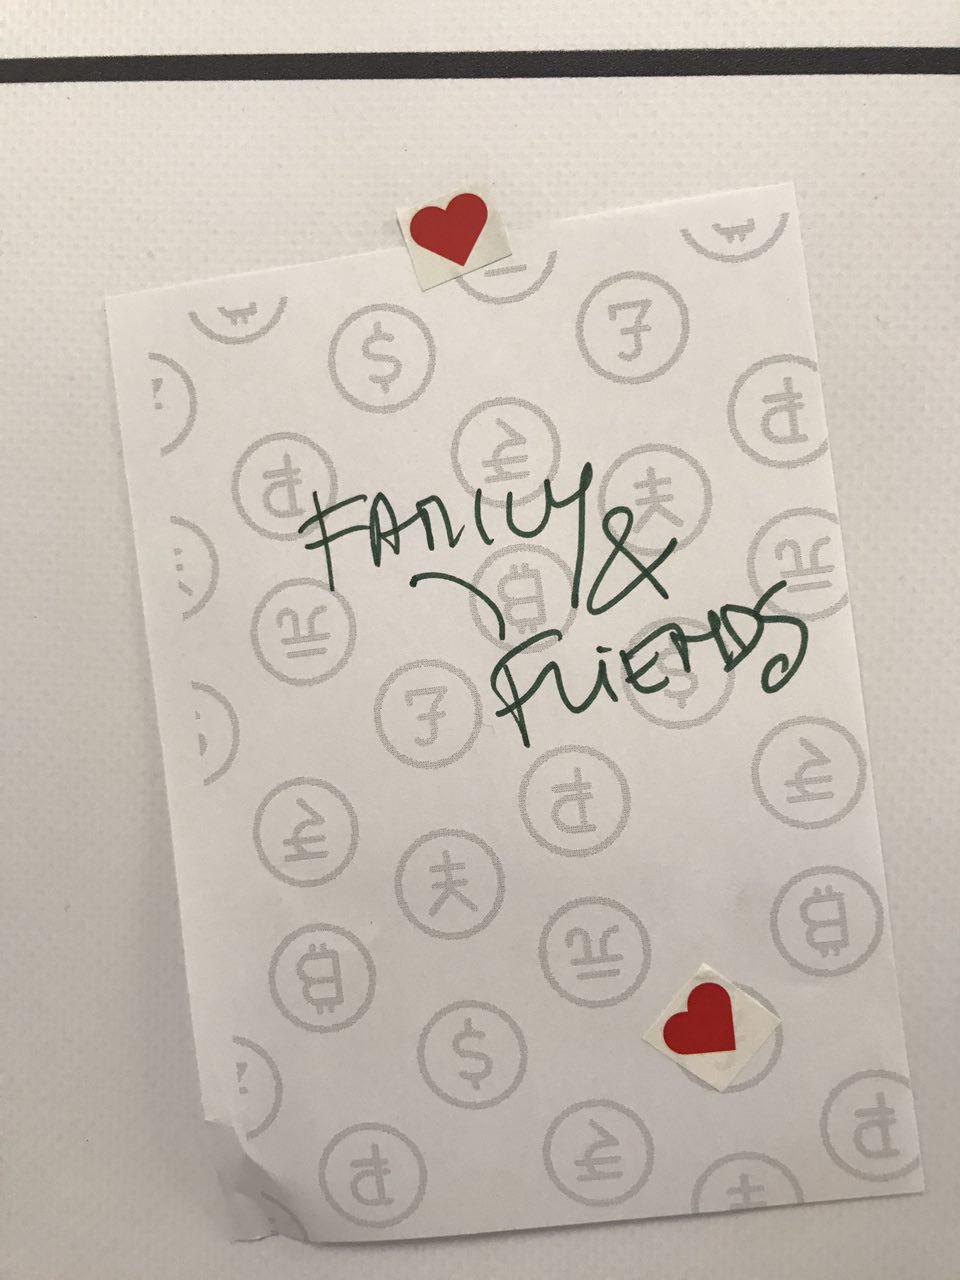 FAMILY &
FRIENDS